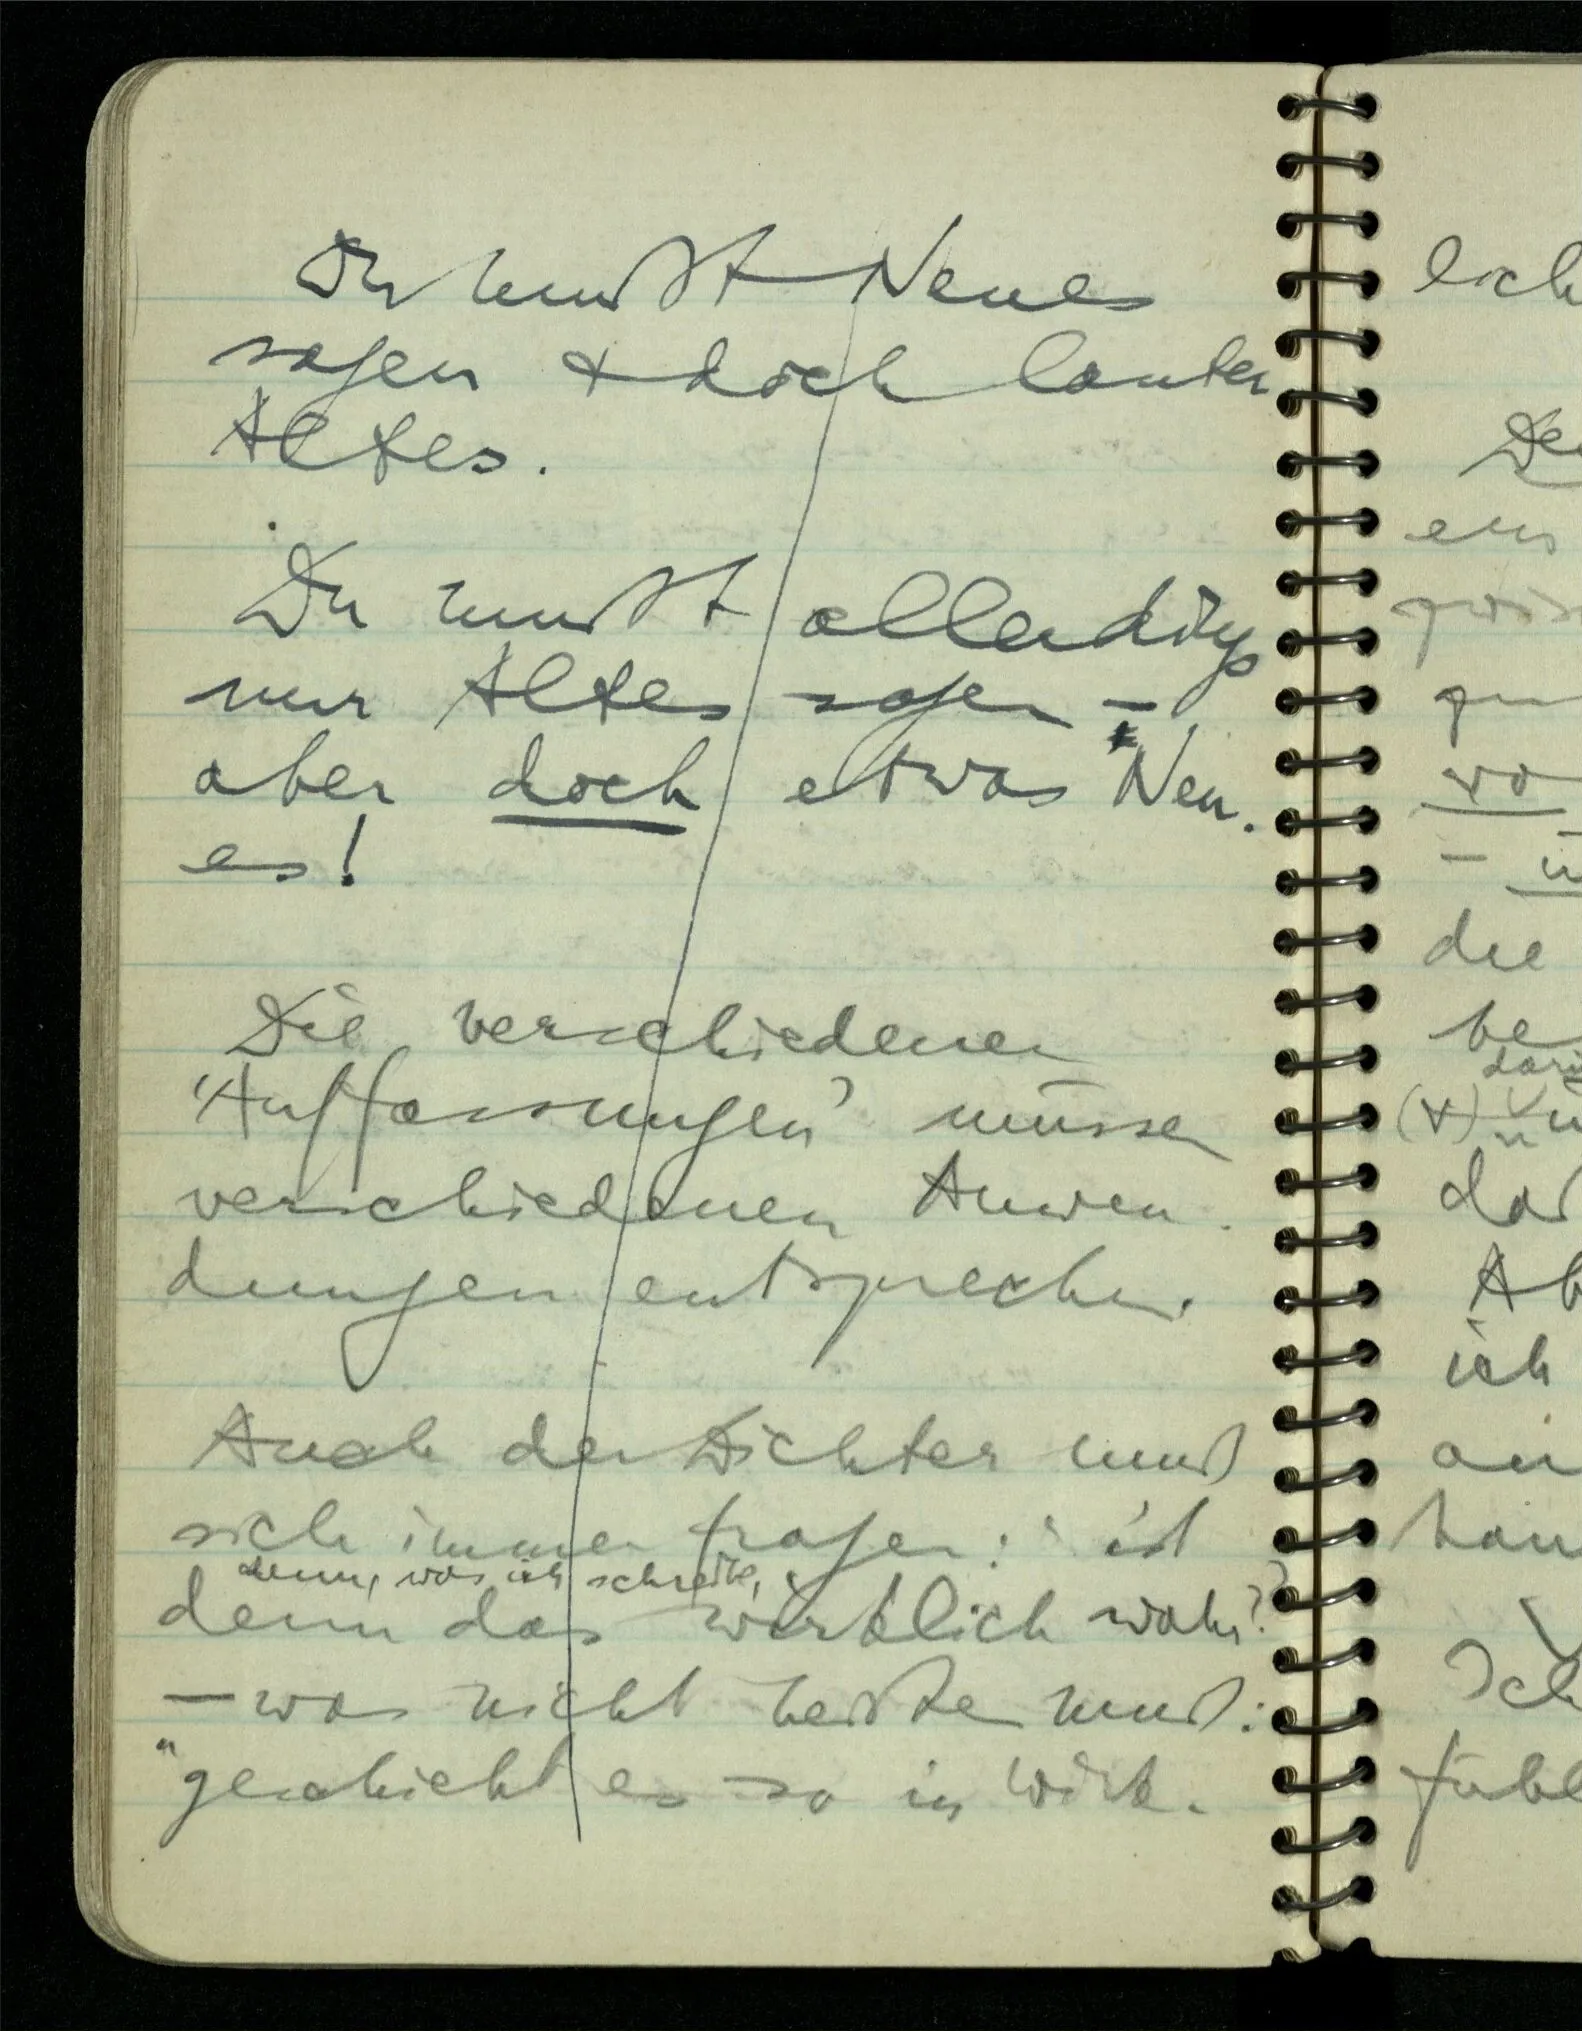 Du mußt Neues
sagen & doch lauter
Altes.
Du mußt allerdings
nur Altes sagen –
aber doch etwas Neu-
es!
Die verschiedenen
'Auffassungen' müssen
verschiedenen Anwen-
dungen entsprechen.
Auch der Dichter muß
sich immer fragen: 'ist
denn, was ich schreibe,
denn das wirklich wahr?'
– was nicht heißen muß:
"geschieht es so in Wirk-
lich
ein
die
(&)
Ab
ich